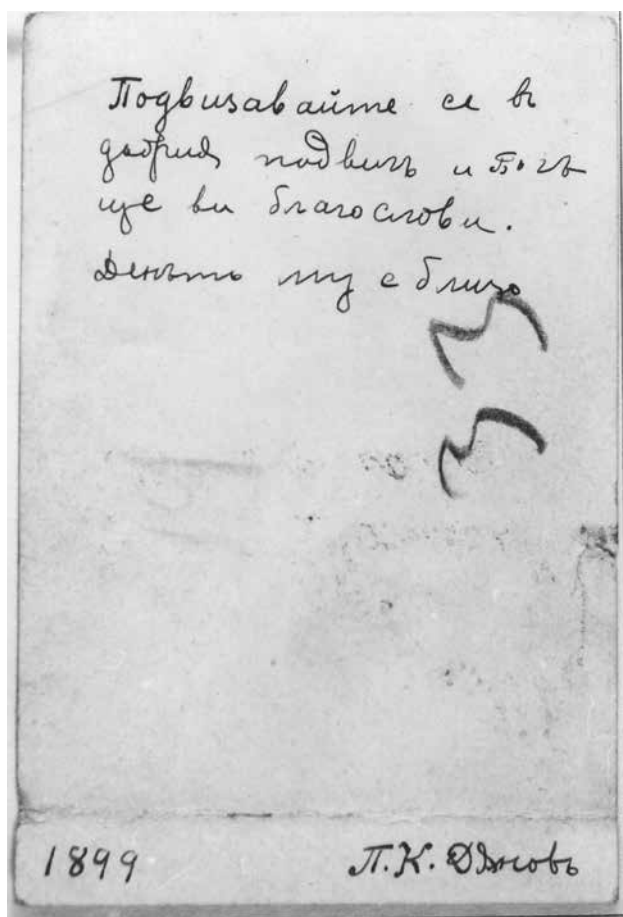 Подвизавайте се въ
добрия подвигъ и Богъ
ще ви благослови.
Деньтъ му е близо
33
1899
П. К. Дѫновъ